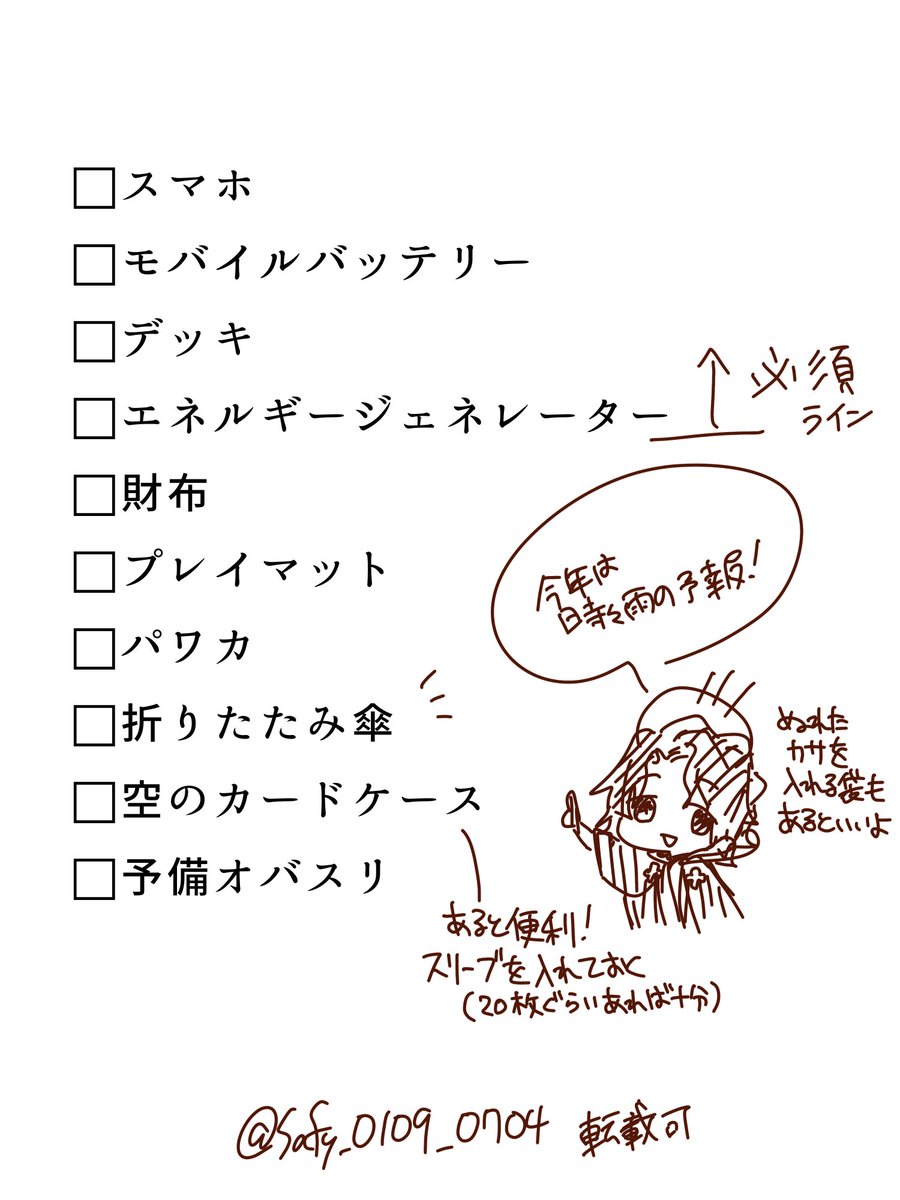 □スマホ
□モバイルバッテリー
□デッキ
□エネルギージェネレーター
↑必須
ライン
□財布
□プレイマット
□パワカ
□折りたたみ傘
□空のカードケース
□予備オバスリ
今年は
日時々雨の予報!
ぬれた
カサを
入れる袋も
あるといいよ
あると便利!
スリーブを入れておく
(20枚ぐらいあれば十分)
@Safy_0109_0704 転載可